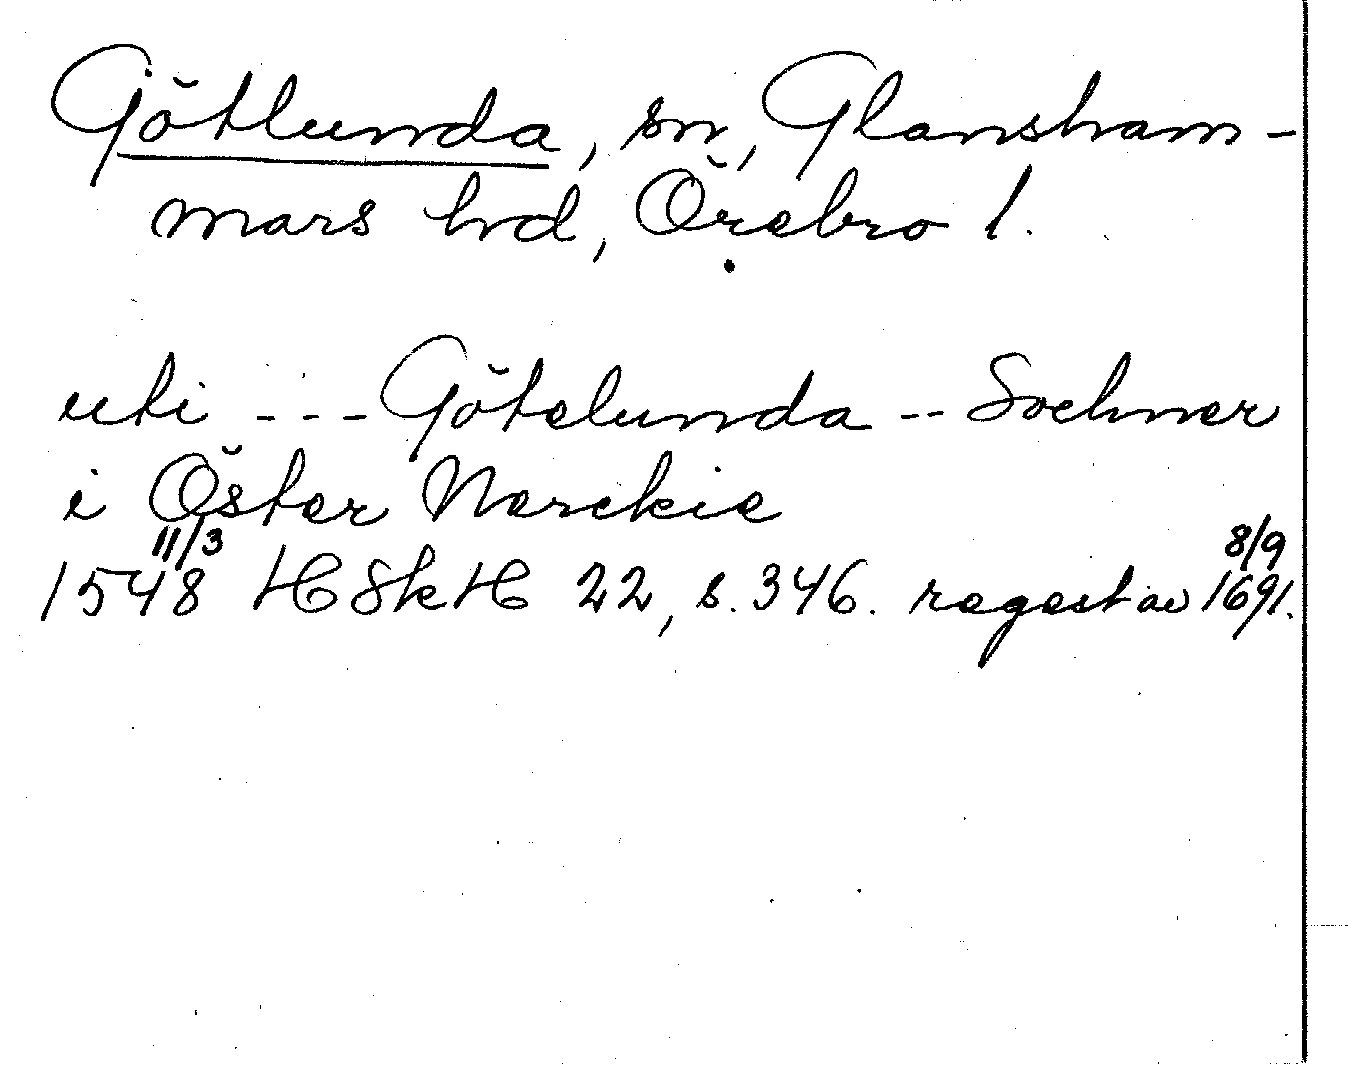 Götlunda, sn, Glansham-
mars hrd, Örebro l.
uti --- Götelunda -- Sochner
i Öster Nerckie
1548 11/3 HSkH 22, s. 346. regest av 8/9 1691.